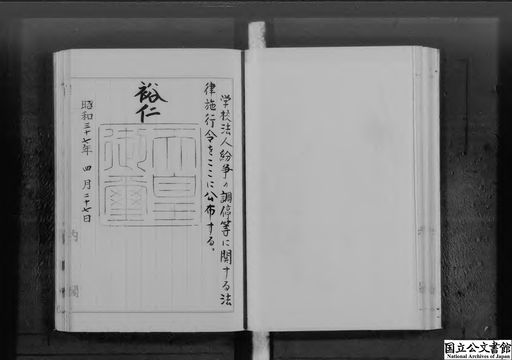 学校法人紛争の調停等に関する法
律施行令をここに公布する。
裕仁
天皇
御璽
昭和三十七年四月二十七日
国立公文書館
National Archives of Japan